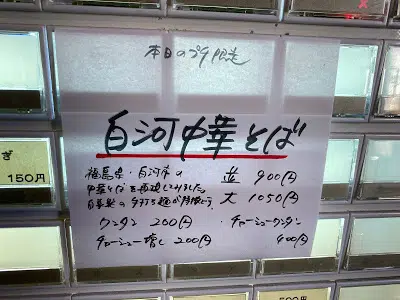 本日のプチ限定
白河中華そば
福島県・白河市の
中華そばを再現してみました。
自家製の手打ち麺が特徴です。
並 900円
大 1050円
ワンタン 200円
チャーシュー増し 200円
チャーシューワンタン
400円
ぎ
150円